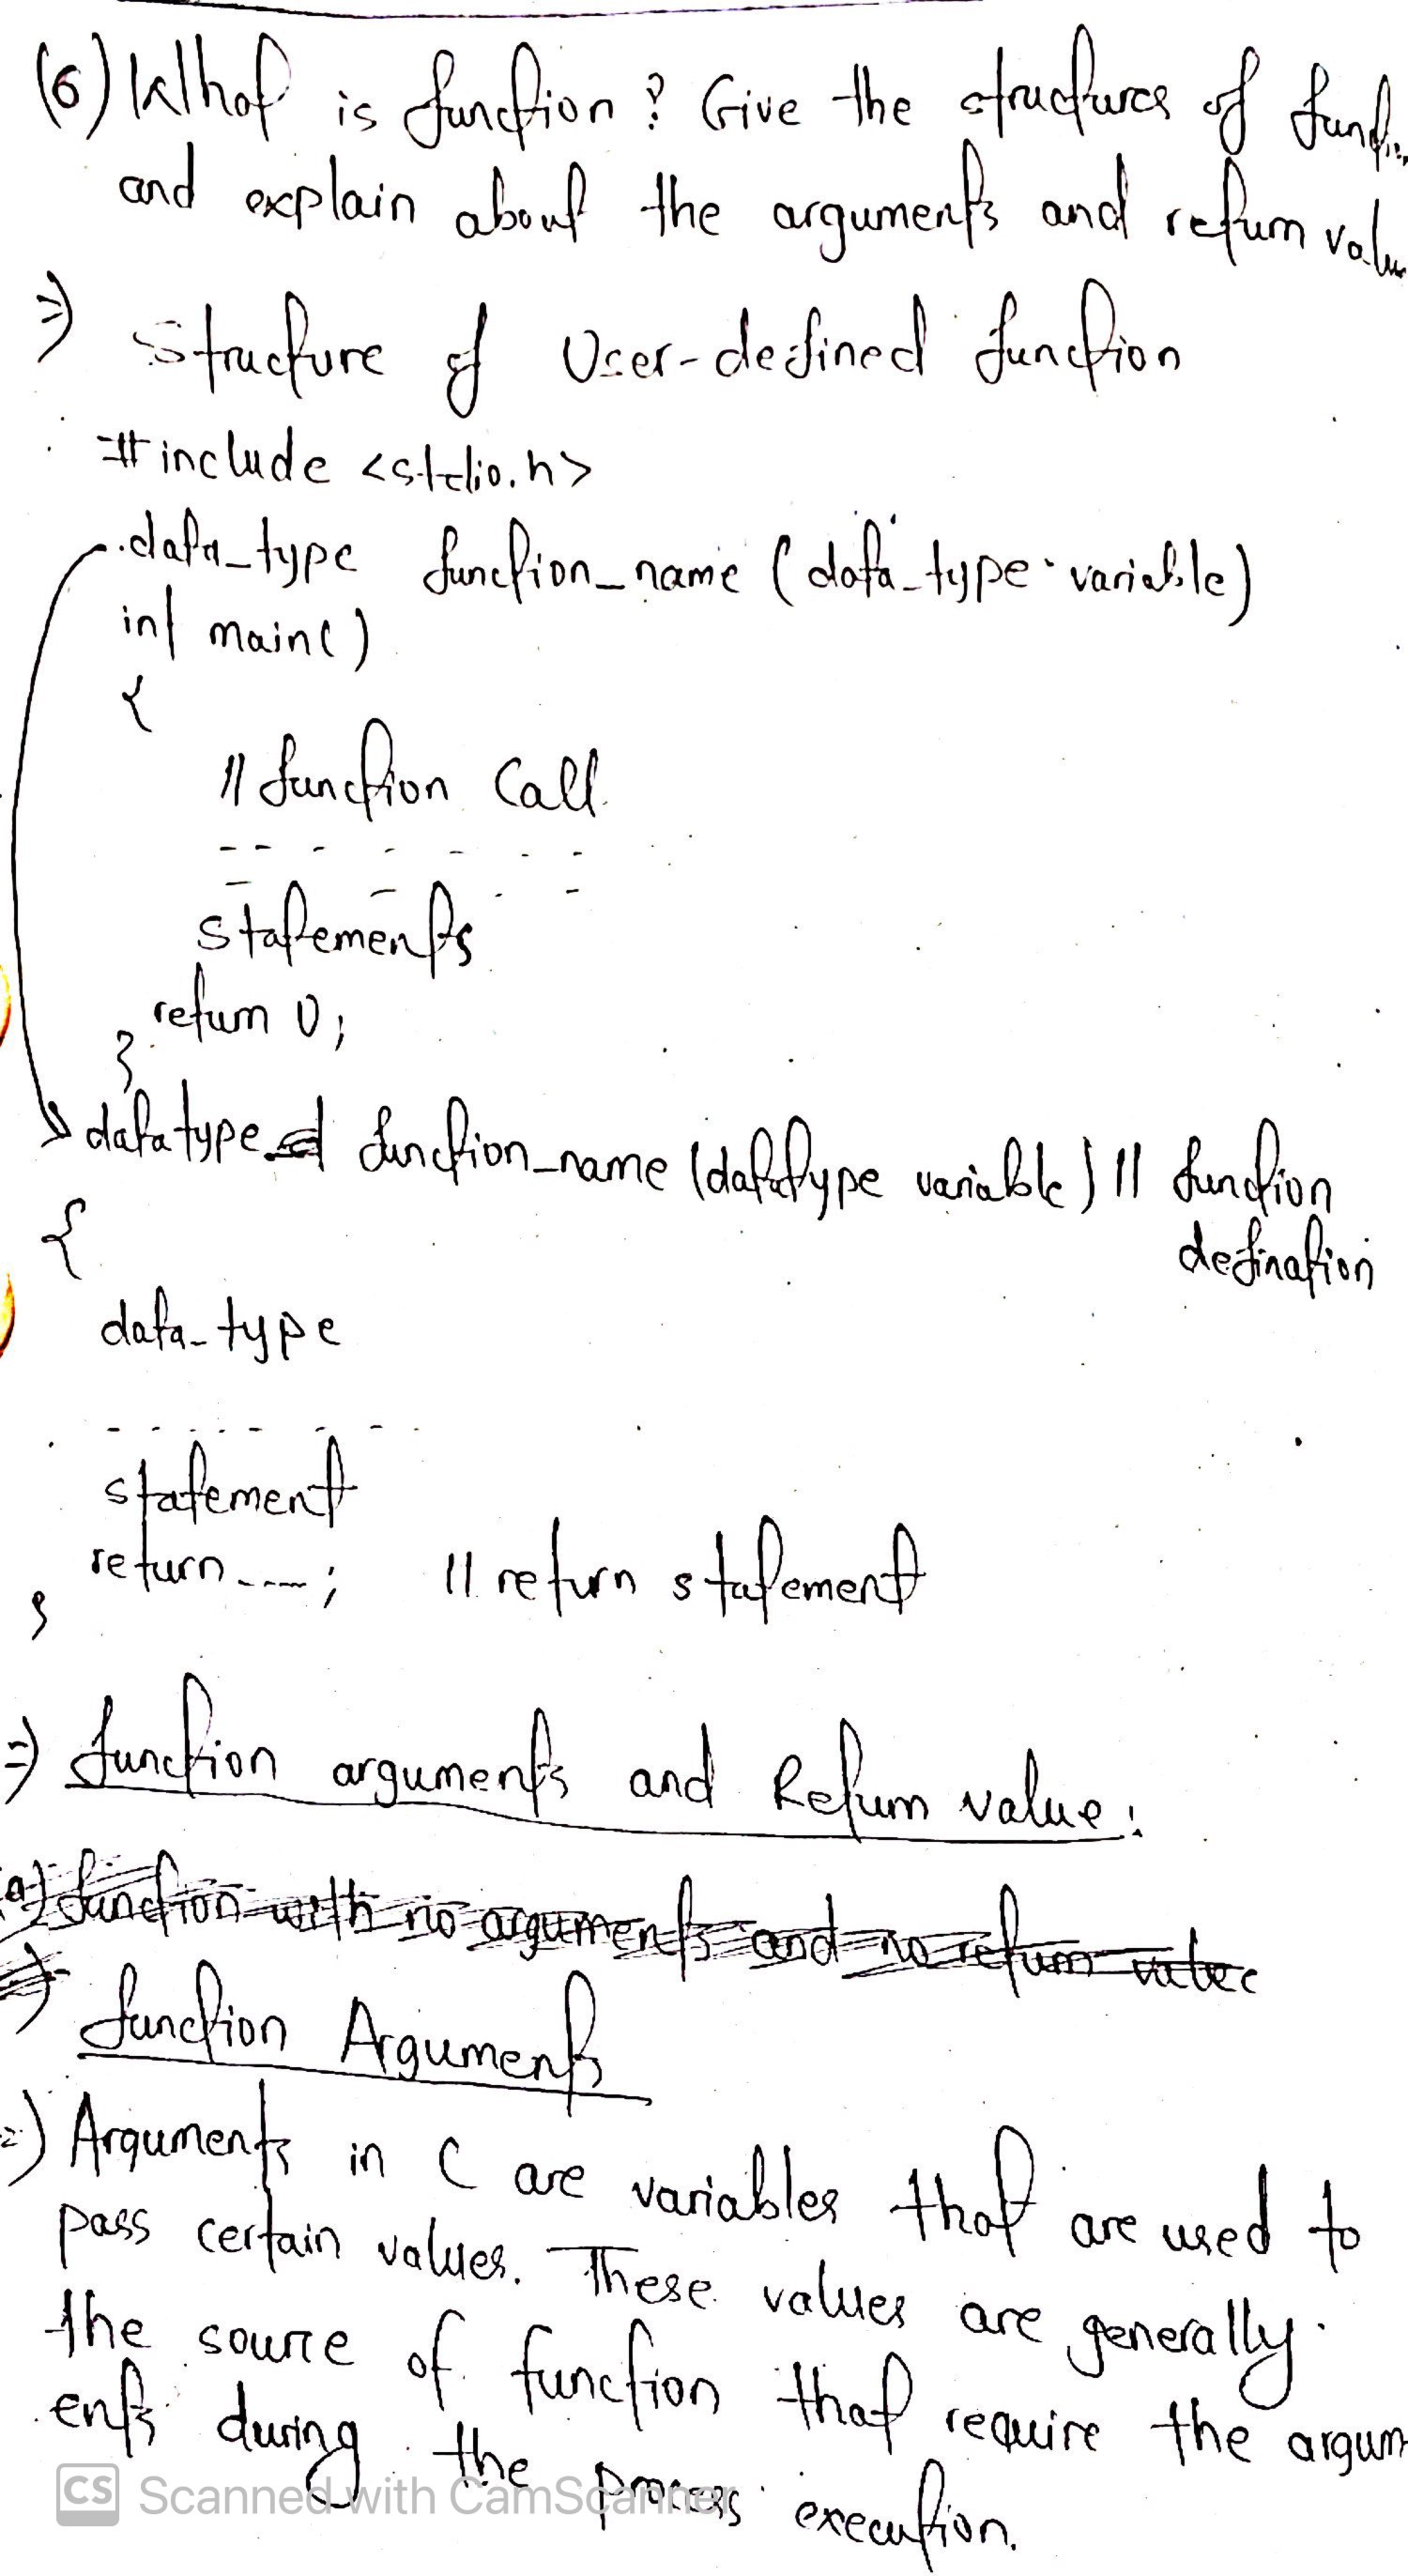 (6) What is function? Give the structures of functi
and explain about the arguments and return valu
=) Structure of User-defined function
#include <stdio.h>
data_type function_name (data_type variable)
int main()
{
// function Call
statements
return 0;
}
datatype function_name (datatype variable) // function
defination
{
data_type
statement
return ----; // return statement
}
=) function arguments and Return value:
a) function with no arguments and no return value
=) function Arguments
=) Arguments in C are variables that are used to
pass certain values. These values are generally
the source of function that require the argum
ents during the process execution.
CS Scanned with CamScanner